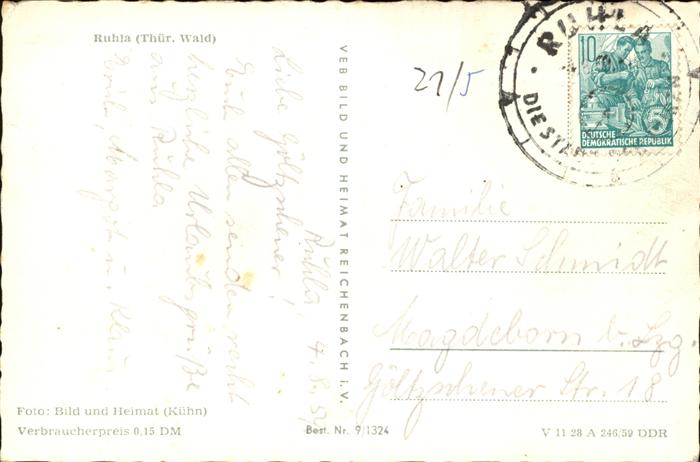 Ruhla (Thür. Wald)
Ruhla, 4. 8. 59
Liebe Göltzschener!
Euch allen senden recht
herzliche Urlaubsgrüße
aus Ruhla
Margot u. Klaus
VEB BILD UND HEIMAT REICHENBACH i. V.
21/5
RUHLA
DIE
10
5
DEUTSCHE
DEMOKRATISCHE REPUBLIK
Familie
Walter Schmidt
Magdeborn b. Lzg.
Göltzschener Str. 18
Foto: Bild und Heimat (Kühn)
Verbraucherpreis 0,15 DM
Best. Nr. 9/1324
V 11 28 A 246/59 DDR